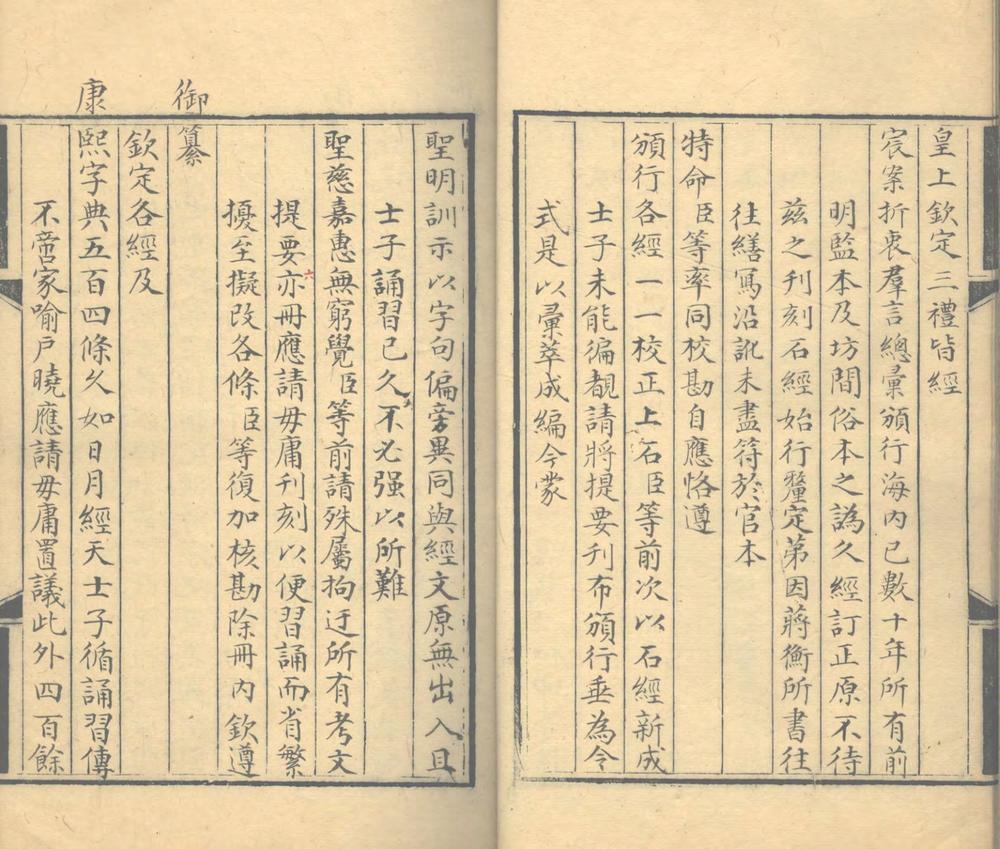 皇上欽定三禮皆經
宸案折衷羣言總彙頒行海內已數十年所有前
明監本及坊間俗本之譌久經訂正原不待
茲之刊刻石經始行釐定第因蔣衡所書往
往繕寫沿訛未盡符於官本
特命臣等率同校勘自應恪遵
頒行各經一一校正上石臣等前次以石經新成
士子未能徧覩請將提要刊布頒行垂為令
式是以彙萃成編今蒙
聖明訓示以字句偏旁異同與經文原無出入且
士子誦習已久不必强以所難
聖慈嘉惠無窮覺臣等前請殊屬拘迂所有考文
提要六亦冊應請毋庸刊刻以便習誦而省繁
擾至擬改各條臣等復加核勘除冊內欽遵
御纂
欽定各經及
康熙字典五百四條久如日月經天士子循誦習傳
不啻家喻戶曉應請毋庸置議此外四百餘